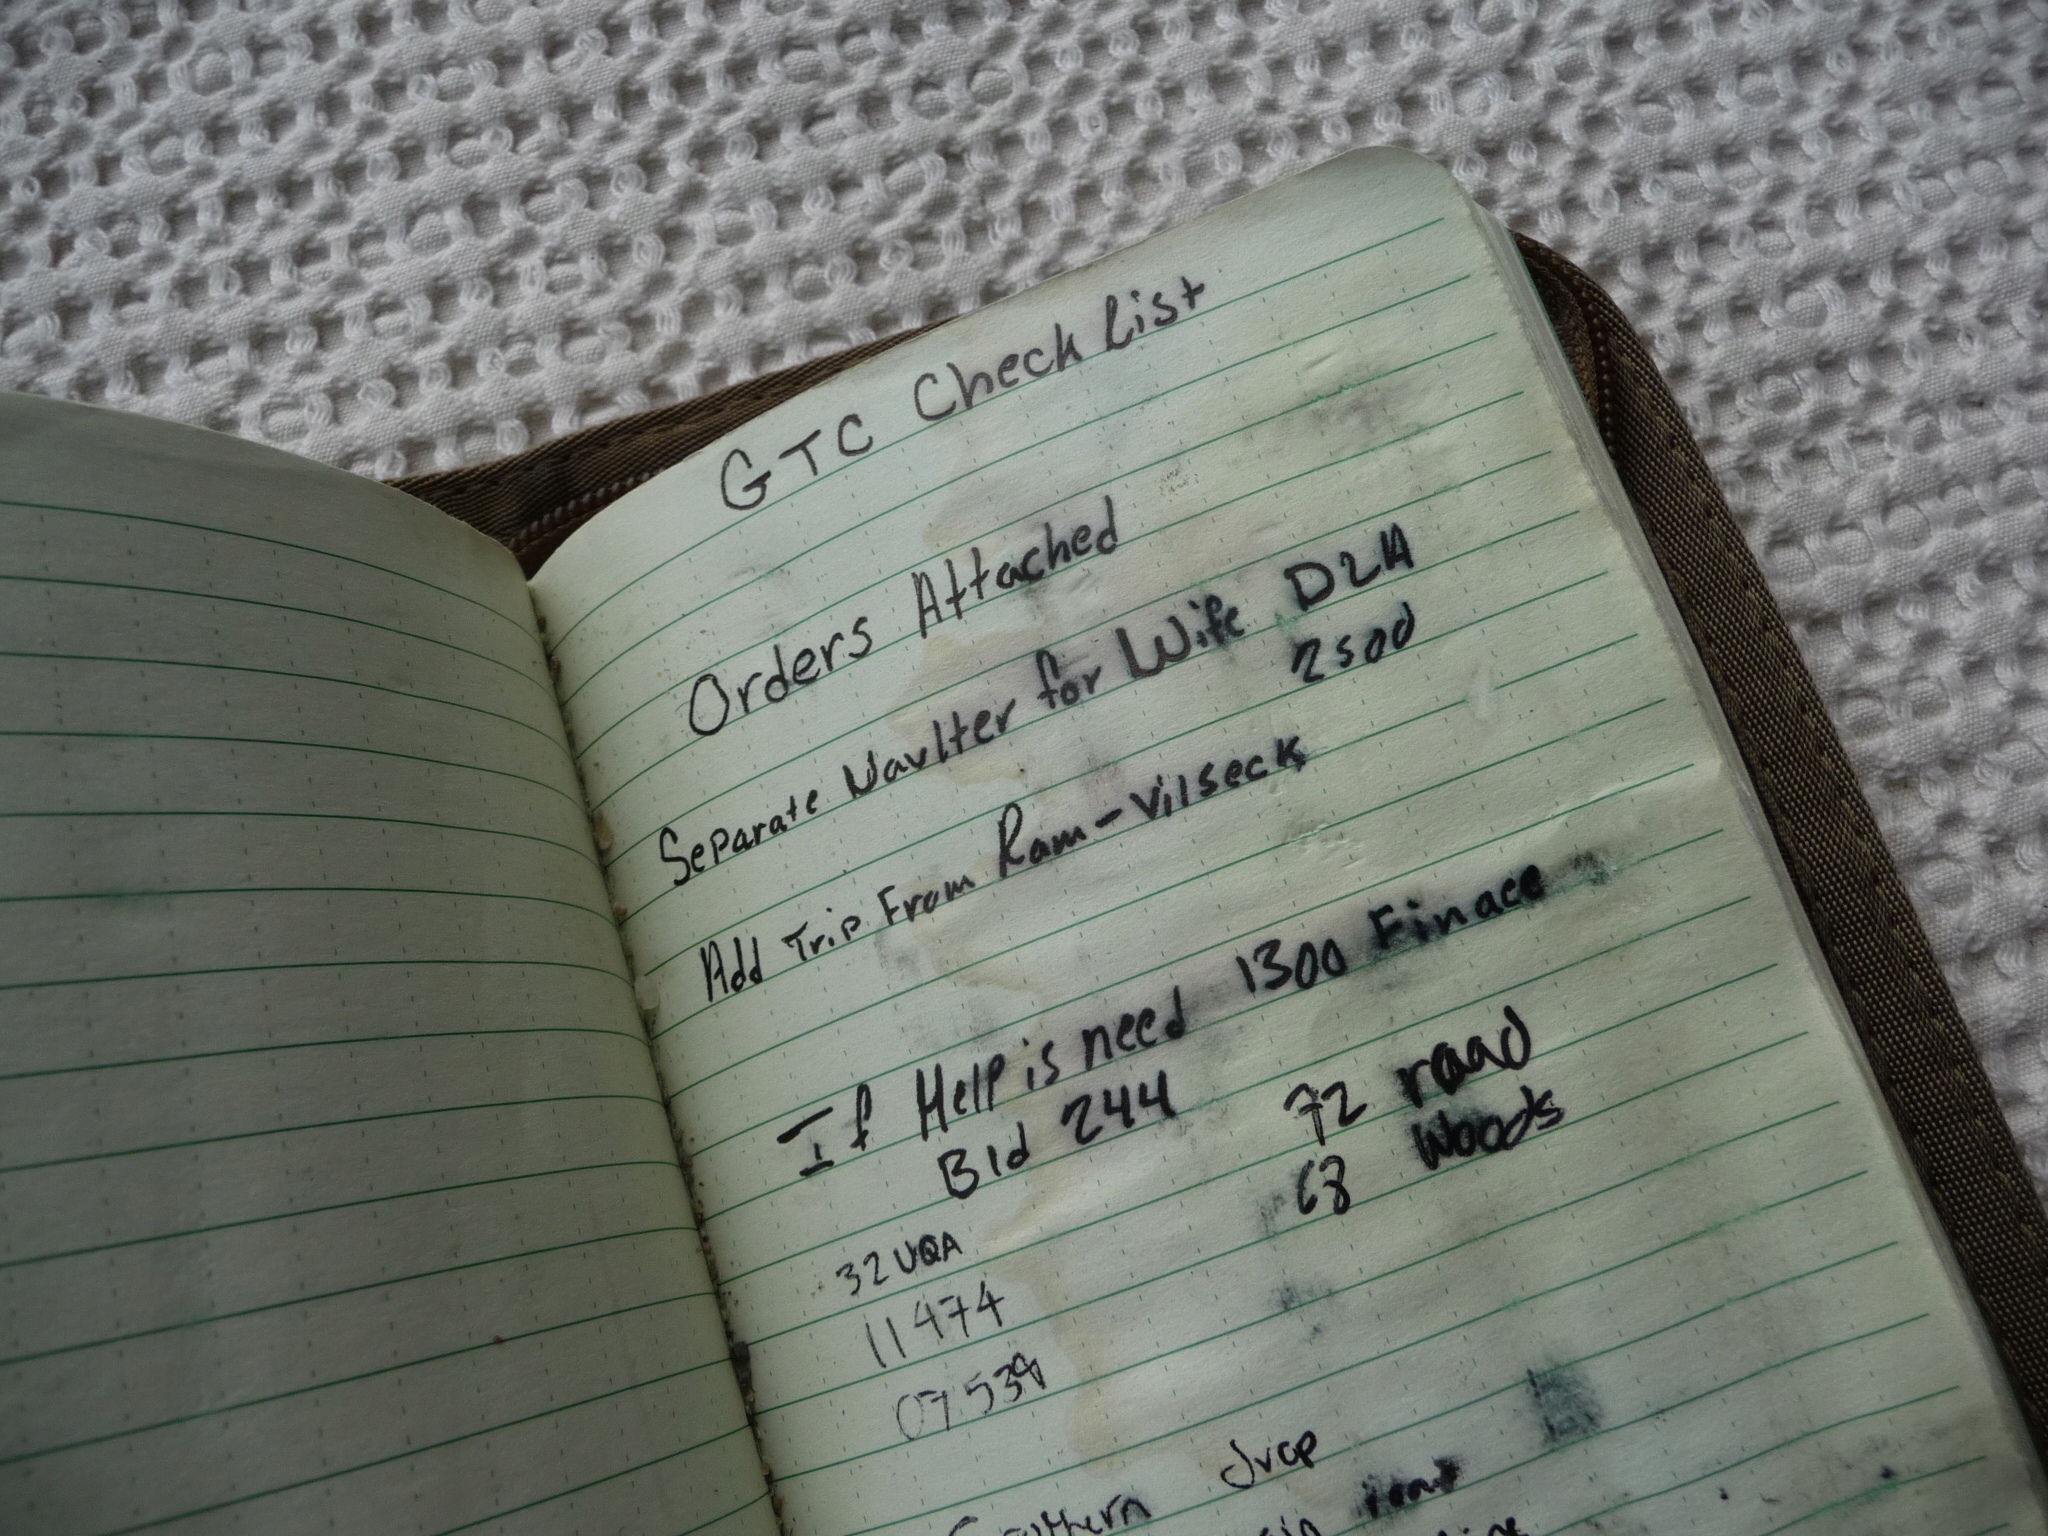 GTC Check List
Orders Attached
Separate Vaulter for Wife DLA
2500
Add Trip From Ram-Vilseck
If Help is need 1300 Finace
Bld 244 72 raad
68 Woods
32 UQA
11474
07539
drop